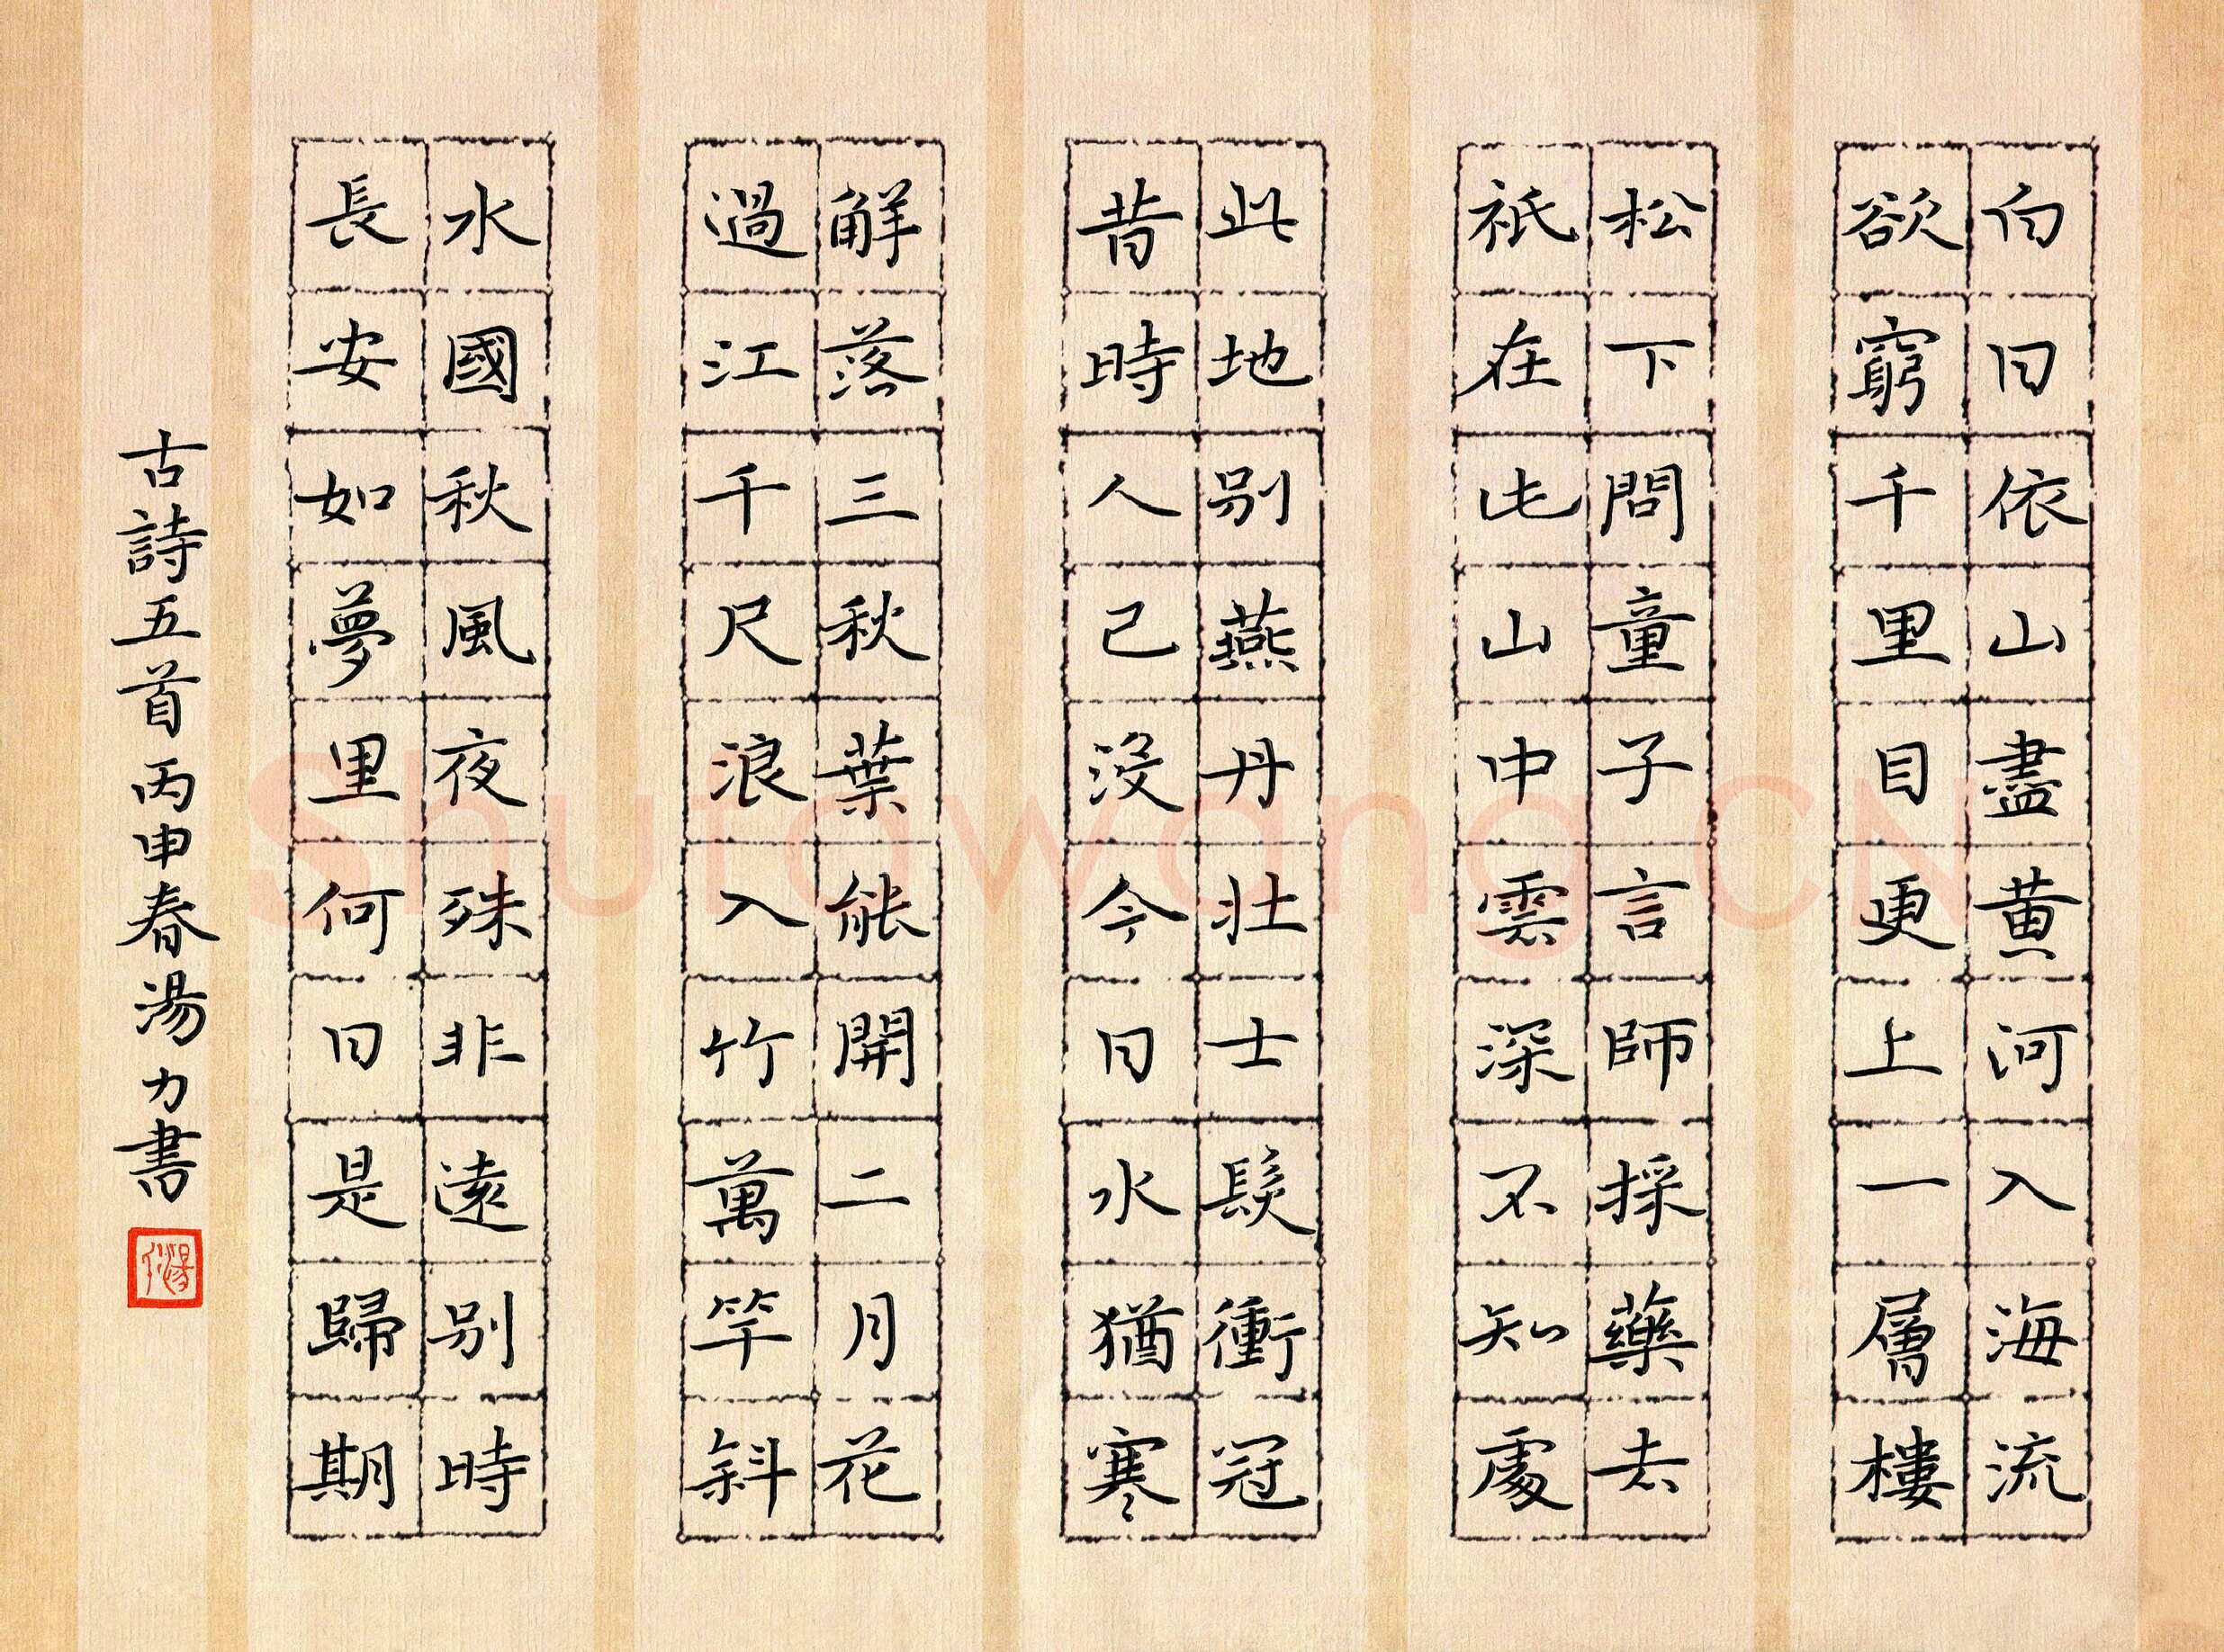 白日依山盡黄河入海流
欲窮千里目更上一層樓
松下問童子言師採藥去
祇在此山中雲深不知處
此地别燕丹壯士髮衝冠
昔時人已没今日水猶寒
解落三秋葉能開二月花
過江千尺浪入竹萬竿斜
水國秋風夜殊非遠别時
長安如夢里何日是歸期
古詩五首丙申春湯力書
shufawang.CN